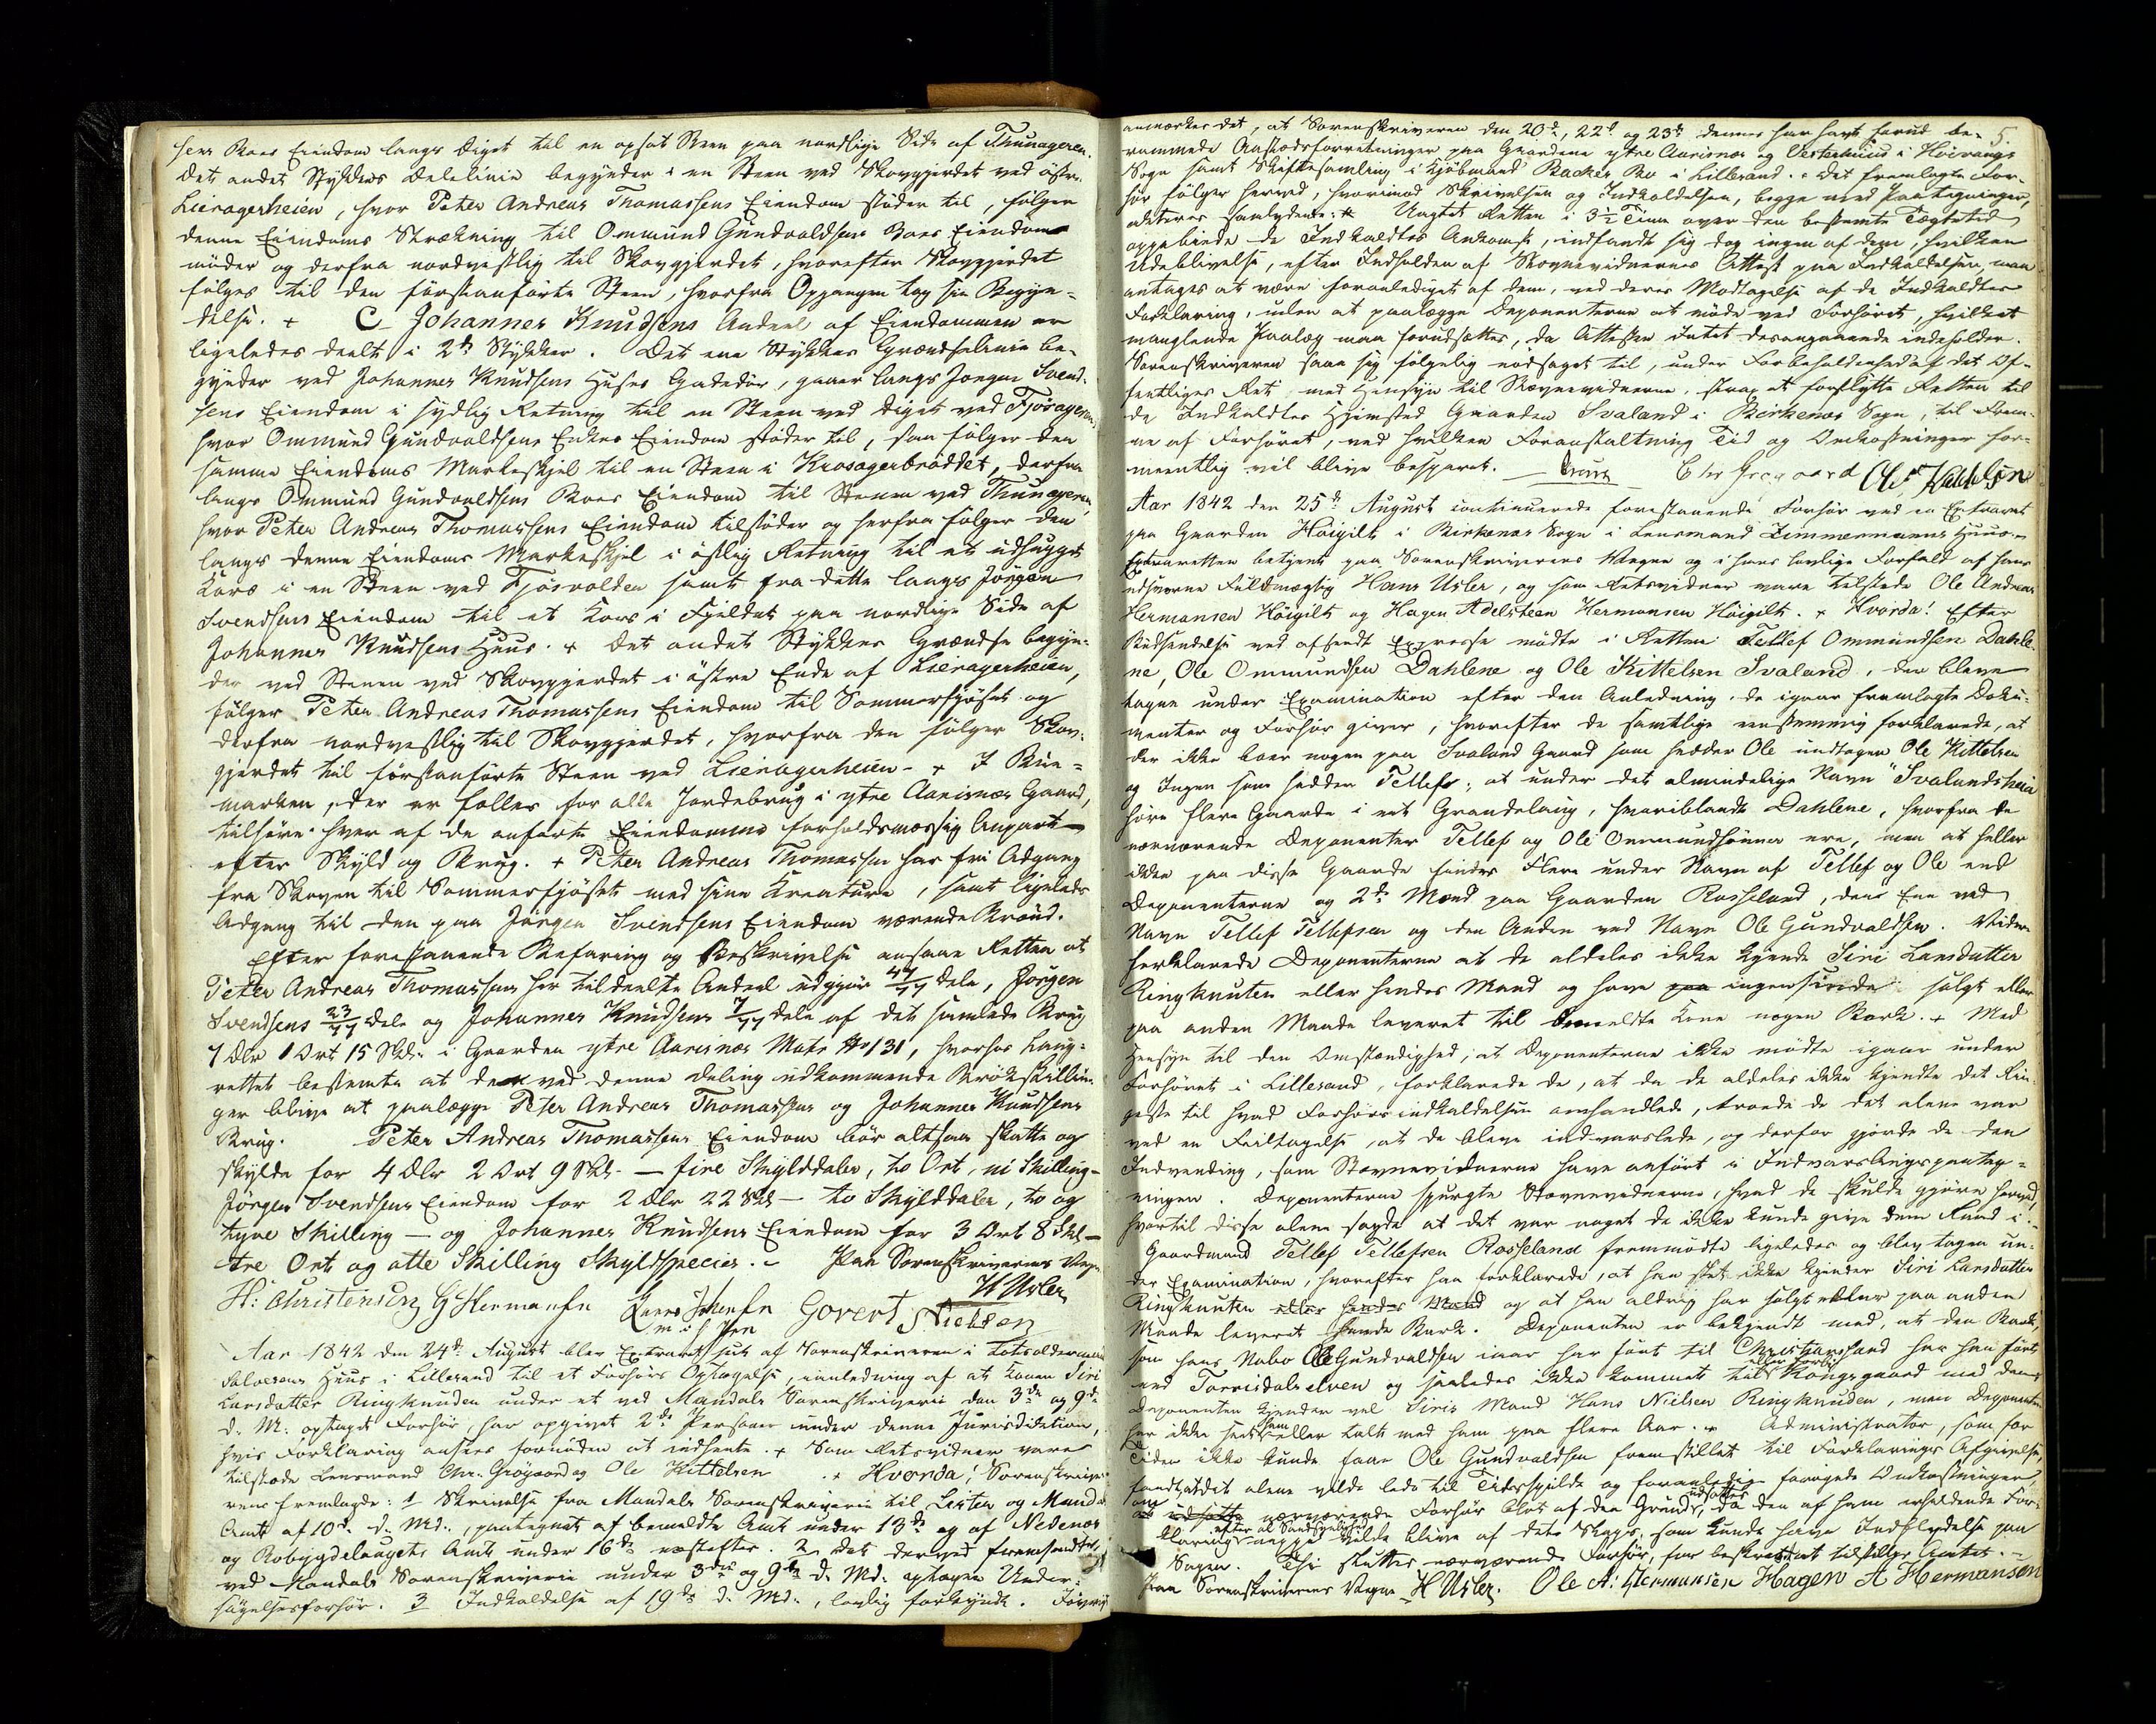 sens Boes Eiendom langs Diget til en opsat Steen paa nordlige Side af Thunageren.
Det andet Stykkes Delelinie begynder i en Steen ved Skovgjerdet ved östre
Lieragerheien, hvor Peter Andreas Thomassens Eiendom stöder til, fölger
denne Eiendoms Strækning til Ommund Gundvaldsens Boes Eiendom
möder og derfra nordvestlig til Skovgjerdet, hvorefter Skovgjerdet
fölges til den förstanförte Steen, hvorfra Opgangen tog sin Begyn-
delse. + C. Johannes Knudsens Andeel af Eiendommen er
ligeledes deelt i 2de Stykker. Det ene Stykkes Grændselinie be-
gynder ved Johannes Knudsens Huses Gadedör, gaaer langs Jörgen Svend-
sens Eiendom i sydlig Retning til en Steen ved Diget ved Fjösageren,
hvor Ommund Gundvaldsens Enkes Eiendom stöder til, saa fölger den
samme Eiendoms Markeskjel til en Steen i Krosagerbröddet, derfra
langs Ommund Gundvaldsens Boes Eiendom til Stenen ved Thunageren,
hvor Peter Andreas Thomassens Eiendom tilstöder og herfra fölger den
langs denne Eiendoms Markeskjel i östlig Retning til et udhugget
Kors i en Steen ved Fjösvolden samt fra dette langs Jörgen
Svendsens Eiendom til et Kors i Fjeldet paa nordlige Side af
Johannes Knudsens Huus. + Det andet Stykkes Grændse begyn-
der ved Stenen ved Skovgjerdet i östre Ende af Lieragerheien,
fölger Peter Andreas Thomassens Eiendom til Sommerfjöset og
derfra nordvestlig til Skovgjerdet, hvorfra den fölger Skov-
gjerdet til förstanförte Steen ved Lieragerheien. + I
marken, der er fælles for alle Jordebrug i ytre Aarisnæs Gaard,
tilhörer hver af de anförte Eiendomme forholdsmæssig Anpart
efter Skyld og Brug. + Peter Andreas Thomassen har fri Adgang
fra Skoven til Sommerfjöset med sine Kreature, samt ligeledes
Adgang til den paa Jörgen Svendsens Eiendom værende Brönd.
Efter forestaaende Befaring og Beskrivelse ansaae Retten at
Peter Andreas Thomassens her tildeelte Andeel udgjör 47/77 dele, Jörgen
Svendsens 23/77 dele og Johannes Knudsens 7/77 dele af det samlede Brug
7 Dlr 1 Ort 15 Skl. i Gaarden ytre Aarisnæs Matr No 131, hvorhos Laug-
rettet bestemte at de ved denne Deling udkommende Brökskillin-
ger blive at paalægge Peter Andreas Thomassens og Johannes Knudsens
Brug. Peter Andreas Thomassens Eiendom bör altsaa skatte og
skylde for 4 Dlr 2 Ort 9 Skl. — fire Skylddaler, to Ort, ni Skilling —
Jörgen Svendsens Eiendom for 2 Dlr 22 Skl — to Skylddaler, to og
tyve Skilling — og Johannes Knudsens Eiendom for 3 Ort 8 Skl —
tre Ort og otte Skilling Skyldspecies. — Paa Sorenskriverens Vegne
H Usler
H: Christensen G Hermansen Govert Nielsen
m i h Pen
Aar 1842 den 24de August blev Extraret sat af Sorenskriveren i Lotsoldermand
Huus i Lillesand til et Forhörs Optagelse, i Anledning af at Konen Siri
Larsdatter Ringknuden under et ved Mandals Sorenskriverie den 3de og 9de
d. M. optaget Forhör, har opgivet 2de Personer under denne Jurisdiktion,
hvis Forklaring ansees fornöden at indhente. + Som Retsvidner vare
tilstede Lensmand Chr. Grögaard og Ole Kittelsen. + Hvorda! Sorenskrive-
ren fremlagde: 1 Skrivelse fra Mandals Sorenskriverie til Lister og Mandals
Amt af 10de d. Md., paategnet af bemeldte Amt under 13de og af Nedenæs
og Robygdelaugets Amt under 16de næstefter. 2 Det derved fremsendte,
ved Mandals Sorenskriverie under 3die og 9de d. Md. optagne Under-
sögelsesforhör. 3 Indkaldelse af 19de d. Md., lovlig forkyndt.
5.
anmærkes det, at Sorenskriveren den 20de, 22de og 23de dennes har havt forud be-
rammede Aastedsforretninger paa Gaardene ytre Aarisnæs og Vesterhuus i Höivaags
Sogn samt Skiftesamling i Kjöbmand Backers Bo i Lillesand. Det fremlagte For-
hör fölger herved, hvorimod Skrivelsen og Indkaldelsen, begge med Paategninger,
akteres saalydende: + Uagtet Retten i 3½ Time over den bestemte Tægtetid
oppebiede de Indkaldtes Ankomst, indfandt sig dog ingen af dem, hvilken
Udeblivelse, efter Indholden af Stevnevidnernes Attest paa Indkaldelsen, maa
antages at være foranlediget af dem, ved deres Modtagelse af de Indkaldtes
Forklaring, uden at paalægge Deponenterne at möde ved Forhöret, hvilket
manglende Paalæg maa forudsættes, da Attesten Intet desangaaende indeholder.
Sorenskriveren saae sig fölgelig nödsaget til, under Forbeholdenhed af det Of-
fentliges Ret med Hensyn til Stævnevidnerne, strax at forflytte Retten til
de Indkaldtes Hjemsted Gaarden Svaland i Birkenæs Sogn, til Frem-
me af Forhöret, ved hvilken Foranstaltning Tid og Omkostninger for-
meentlig vil blive besparet. — Chr Grøgaard Ole Kittelsen
Aar 1842 den 25de August continuerede forestaaende Forhör ved en Extraret
paa Gaarden Höigilt i Birkenæs Sogn i Lensmand Zimmermanns Huus.
Extraretten betjent paa Sorenskriverens Vegne og i hans lovlige Forfald af hans
edsvorne Fuldmægtig Hans Usler, og som Retsvidner vare tilstede Ole Andreas
Hermansen Höigilt og Hagen Adelsteen Hermansen Höigilt. + Hvorda! Efter
Budsendelse ved afsendt Expresse mödte i Retten Tellef Ommundsen Dahle-
ne, Ole Ommundsen Dahlene og Ole Kittelsen Svaland, der bleve
tagne under Examination efter den Anledning de igaar fremlagte Doku-
menter og Forhör giver, hvorefter de samtlige eenstemmig forklarede, at
der ikke boer nogen paa Svaland Gaard som hedder Ole undtagen Ole Kittelsen
og Ingen som hedder Tellef; at under det almindelige Navn "Svalandsheia"
höre flere Gaarde i eet Grændelaug, hvoriblandt Dahlene, hvorfra de
nærværende Deponenter Tellef og Ole Ommundsönner ere, men at heller
ikke paa disse Gaarde findes Flere under Navn af Tellef og Ole end
Deponenterne og 2de Mænd paa Gaarden Rosseland, den Ene ved
Navn Tellef Tellefsen og den Anden ved Navn Ole Gundvaldsen. Videre
forklarede Deponenterne at de aldeles ikke kjende Siri Larsdatter
Ringknuten eller hendes Mand og have paa ingensinde solgt eller
paa anden Maade leveret til bemeldte Kone nogen Bark. + Med
Hensyn til den Omstændighed, at Deponenterne ikke mödte igaar under
Forhöret i Lillesand, forklarede de, at da de aldeles ikke kjendte det Rin-
geste til hvad Forhörsindkaldelsen omhandlede, troede de det alene var
ved en Feiltagelse, at de bleve indvarslede, og derfor gjorde de den
Indvending, som Stævnevidnerne have anfört i Indvarslingspaateg-
ningen. Deponenterne spurgte Stævnevidnerne, hvad de skulde gjöre herved,
hvortil disse alene sagde at det var noget de ikke kunde give dem Raad i. —
Gaardmand Tellef Tellefsen Rosseland fremmödte ligeledes og blev tagen un-
der Examination, hvorefter han forklarede, at han slet ikke kjender Siri Larsdatter
Ringknuten eller hendes Mand og at han aldrig har solgt eller paa anden
Maade leveret hende Bark. Deponenten er bekjendt med, at den Bark,
som hans Nabo Ole Gundvaldsen iaar har fört til Christianssand har han fört
ned Torrisdalselven og saaledes ikke kommet til eller forbi Kongsgaard med den.
Deponenten kjender vel Siris Mand Hans Nielsen Ringknuden, men Deponenten
har ikke seet ham eller talt med ham paa flere Aar. + Administrator, som for
Tiden ikke kunde faae Ole Gundvaldsen fremstillet til Forklarings Afgivelse,
fandt at det alene vilde lede til Tidsspilde og foranledige forögede Omkostninger,
om udsatte nærværende Forhör blot af den Grund udsattes, da den af ham erholdende For-
klaring efter al Sandsynlighed neppe vilde blive af det Slags, som kunde have Indflydelse paa
Sagen. Thi sluttes nærværende Forhör, for beskrevet at tilstilles Amtet. —
Paa Sorenskriverens Vegne H Usler. Ole A: Hermansen Hagen A Hermansen